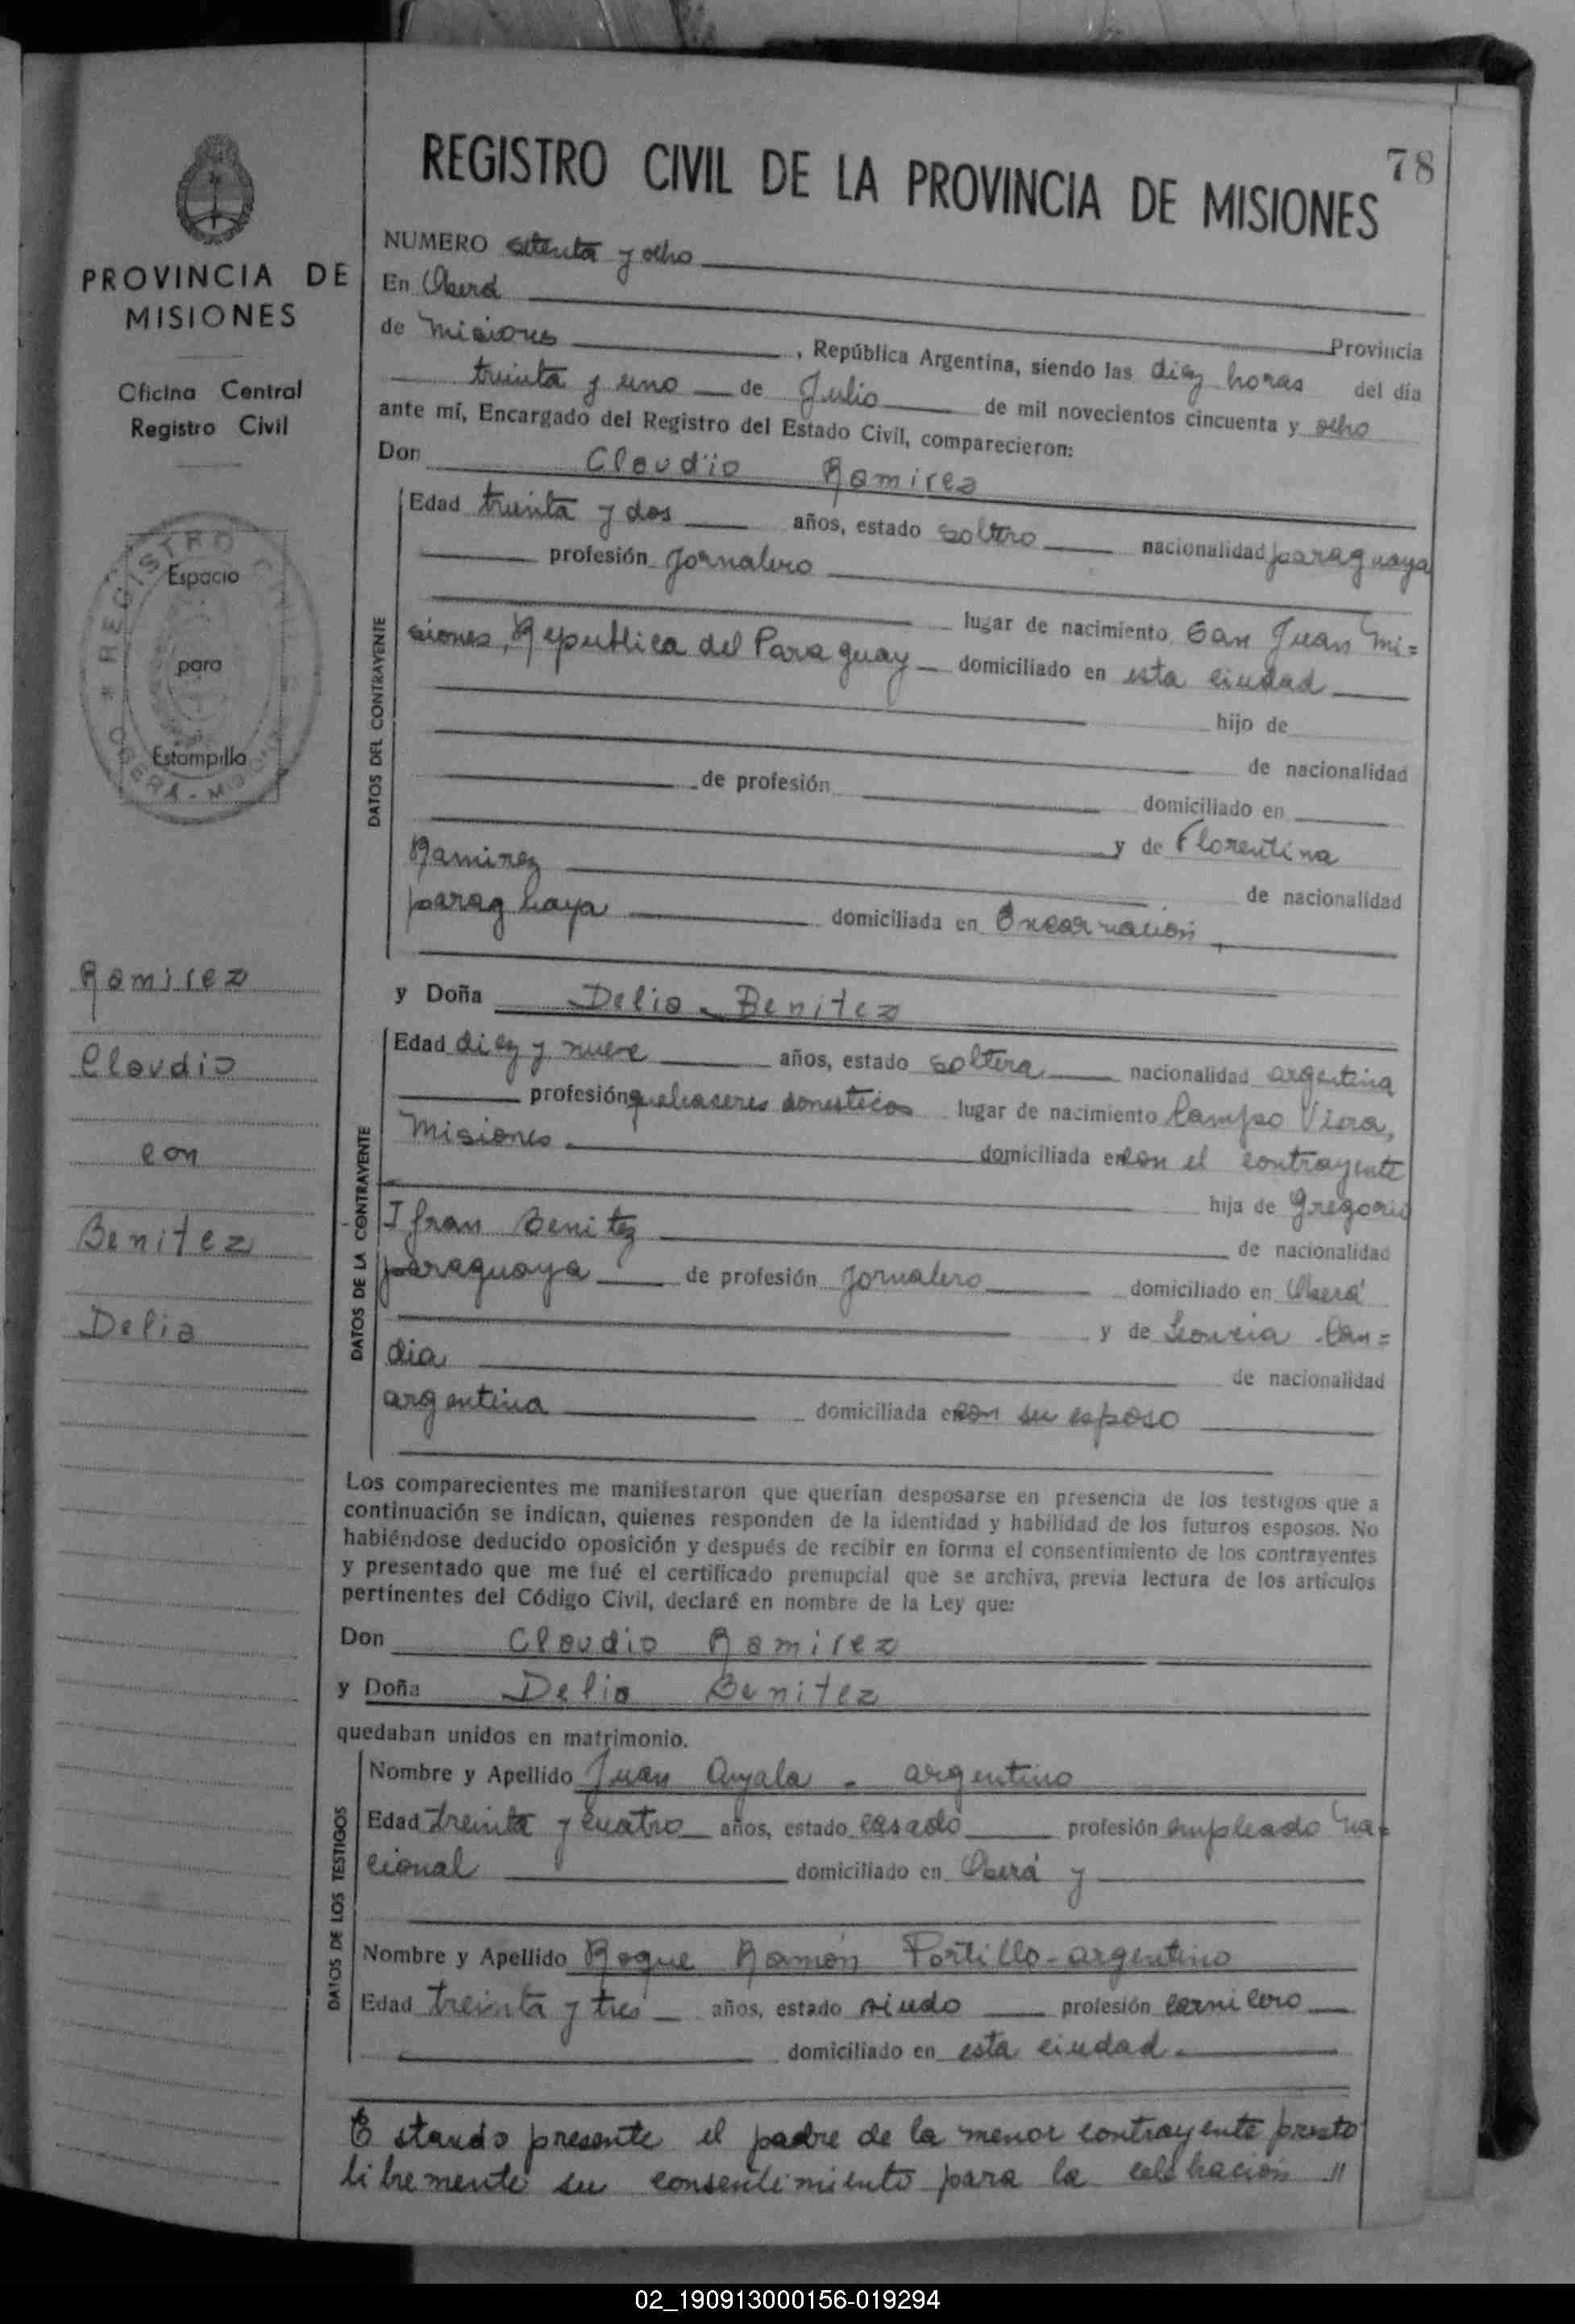 78
REGISTRO CIVIL DE LA PROVINCIA DE MISIONES
PROVINCIA DE
MISIONES
Oficina Central
Registro Civil
REGISTRO CIVIL
Espacio
para
Estampilla
OBERA - MISIONES
Ramirez
Claudio
con
Benitez
Delia
NUMERO setenta y ocho
En Oberá
Provincia
de Misiones, República Argentina, siendo las diez horas del día
treinta y uno de Julio de mil novecientos cincuenta y ocho
ante mí, Encargado del Registro del Estado Civil, comparecieron:
Don Claudio Ramirez
DATOS DEL CONTRAYENTE
Edad treinta y dos años, estado soltero nacionalidad paraguaya
profesión Jornalero
lugar de nacimiento San Juan Mi=
siones, Republica del Paraguay domiciliado en esta ciudad
hijo de
de nacionalidad
de profesión domiciliado en
y de Florentina
Ramirez de nacionalidad
paraguaya domiciliada en Encarnación,
y Doña Delia Benitez
DATOS DE LA CONTRAYENTE
Edad diez y nueve años, estado soltera nacionalidad argentina
profesión quehaceres domesticos lugar de nacimiento Campo Viera,
Misiones domiciliada en con el contrayente
hija de Gregorio
Ifran Benitez de nacionalidad
paraguaya de profesión Jornalero domiciliado en Oberá
y de Leoncia Can=
dia de nacionalidad
argentina domiciliada en con su esposo
Los comparecientes me manifestaron que querían desposarse en presencia de los testigos que a
continuación se indican, quienes responden de la identidad y habilidad de los futuros esposos. No
habiéndose deducido oposición y después de recibir en forma el consentimiento de los contrayentes
y presentado que me fué el certificado prenupcial que se archiva, previa lectura de los artículos
pertinentes del Código Civil, declaré en nombre de la Ley que:
Don Claudio Ramirez
y Doña Delia Benitez
quedaban unidos en matrimonio.
DATOS DE LOS TESTIGOS
Nombre y Apellido Juan Ayala - argentino
Edad treinta y cuatro años, estado casado profesión empleado Na=
cional domiciliado en Oberá y
Nombre y Apellido Roque Ramón Portillo - argentino
Edad treinta y tres años, estado viudo profesión carnicero
domiciliado en esta ciudad.
Estando presente el padre de la menor contrayente presto
libremente su consentimiento para la celebración //
02_190913000156-019294